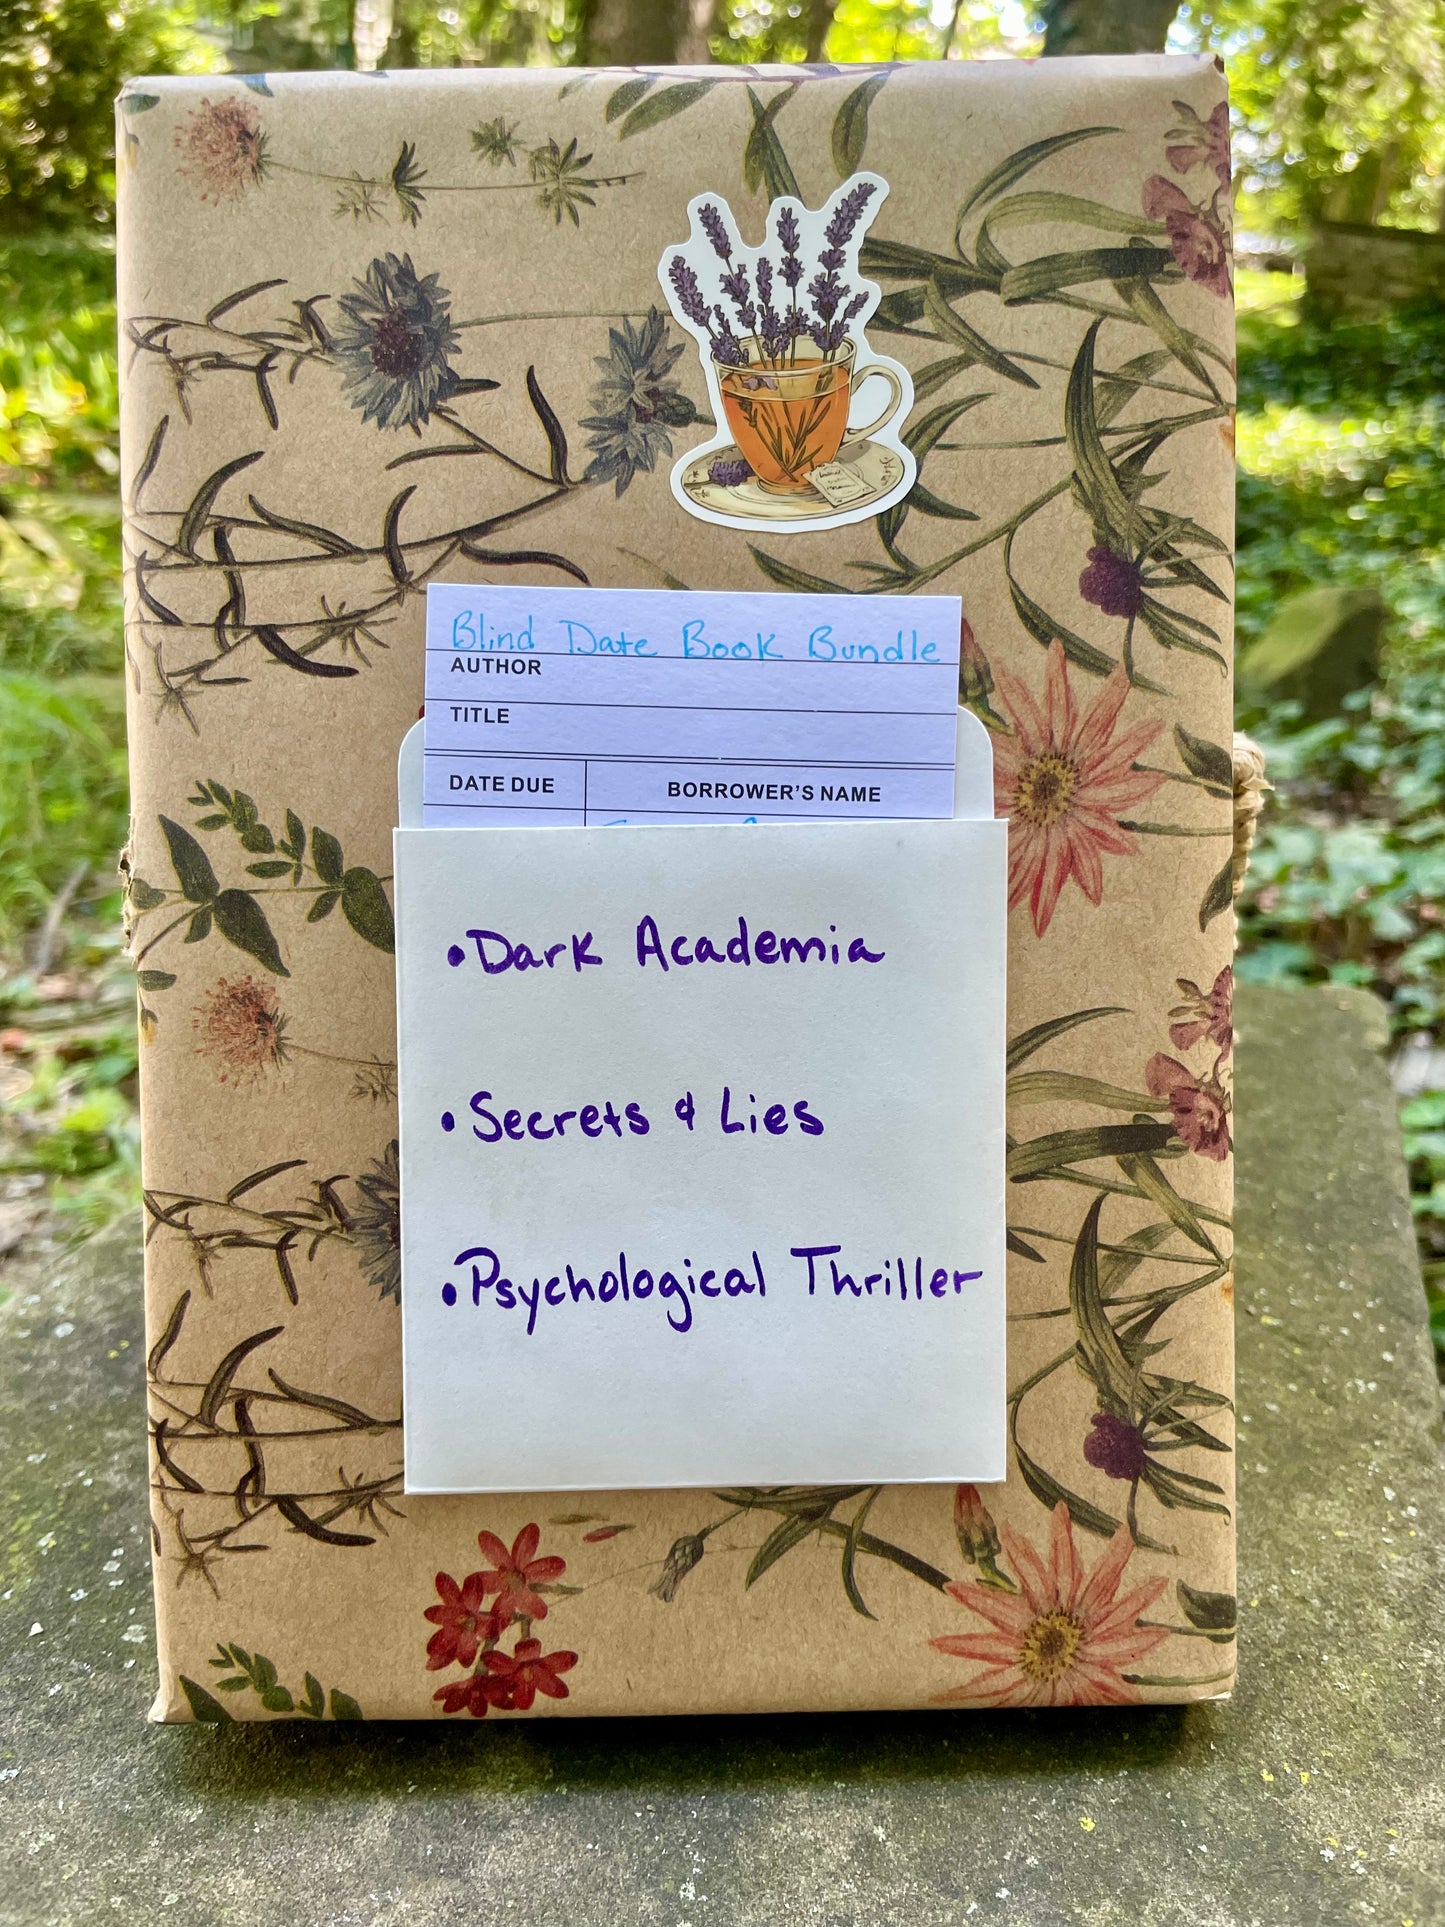 Blind Date Book Bundle
AUTHOR
TITLE
DATE DUE BORROWER'S NAME
•Dark Academia
•Secrets & Lies
•Psychological Thriller